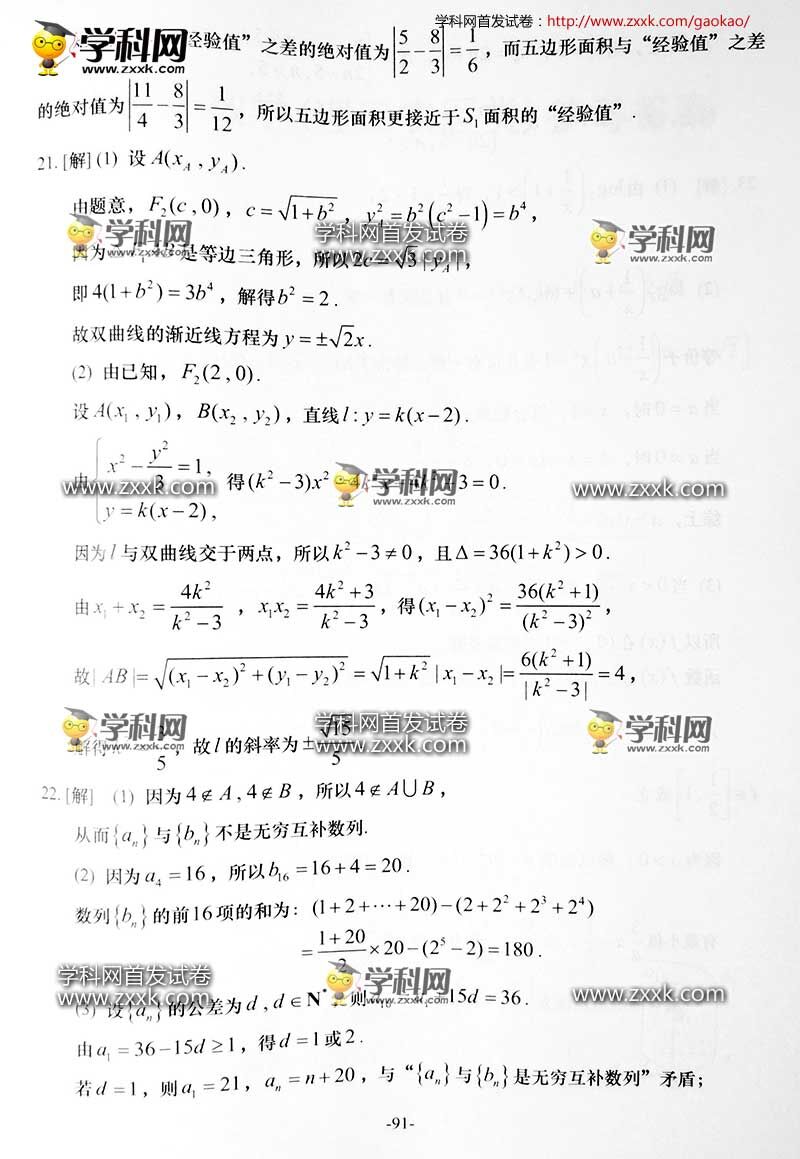 学科网首发试卷：http://www.zxxk.com/gaokao/
学科网
www.zxxk.com
经验值”之差的绝对值为|5/2 − 8/3| = 1/6，而五边形面积与“经验值”之差
的绝对值为|11/4 − 8/3| = 1/12，所以五边形面积更接近于S₁面积的“经验值”.
21. [解] (1) 设 A(x_A , y_A).
由题意，F₂(c , 0)，c = √(1+b²)，y_A² = b²(c² −1) = b⁴，
学科网
www.zxxk.com
学科网首发试卷
www.zxxk.com
学科网
www.zxxk.com
因为 是等边三角形，所以 2c = √3 |y_A|，
即 4(1+b²) = 3b⁴，解得 b² = 2.
故双曲线的渐近线方程为 y = ±√2x.
(2) 由已知，F₂(2 , 0).
设 A(x₁ , y₁)，B(x₂ , y₂)，直线 l : y = k(x−2).
由 { x² − y²/3 = 1,
y = k(x−2),
得 (k² −3)x² − 4k²x + 4k² + 3 = 0.
学科网首发试卷
www.zxxk.com
学科网
www.zxxk.com
学科网首发试卷
www.zxxk.com
因为 l 与双曲线交于两点，所以 k² −3 ≠ 0，且 Δ = 36(1+k²) > 0.
由 x₁ + x₂ = 4k²/(k² −3)，x₁x₂ = (4k² +3)/(k² −3)，得 (x₁ − x₂)² = 36(k² +1)/(k² −3)²，
故 | AB | = √((x₁ − x₂)² + (y₁ − y₂)²) = √(1+k²) | x₁ − x₂ | = 6(k² +1)/| k² −3 | = 4，
学科网
www.zxxk.com
学科网首发试卷
www.zxxk.com
学科网
www.zxxk.com
解得 3/5，故 l 的斜率为 ±√15/5
22. [解] (1) 因为 4 ∉ A , 4 ∉ B，所以 4 ∉ A∪B，
从而{aₙ}与{bₙ}不是无穷互补数列.
(2) 因为 a₄ = 16，所以 b₁₆ = 16 + 4 = 20.
数列{bₙ}的前16项的和为：(1+2+⋯+20) − (2+2² +2³ +2⁴)
= (1+20)/2 × 20 − (2⁵ −2) = 180.
学科网首发试卷
www.zxxk.com
学科网
www.zxxk.com
学科网首发试卷
www.zxxk.com
(3) 设{aₙ}的公差为 d , d ∈ N*，则 15d = 36.
由 a₁ = 36 −15d ≥ 1，得 d = 1 或 2.
若 d = 1，则 a₁ = 21，aₙ = n + 20，与“{aₙ}与{bₙ}是无穷互补数列”矛盾；
-91-